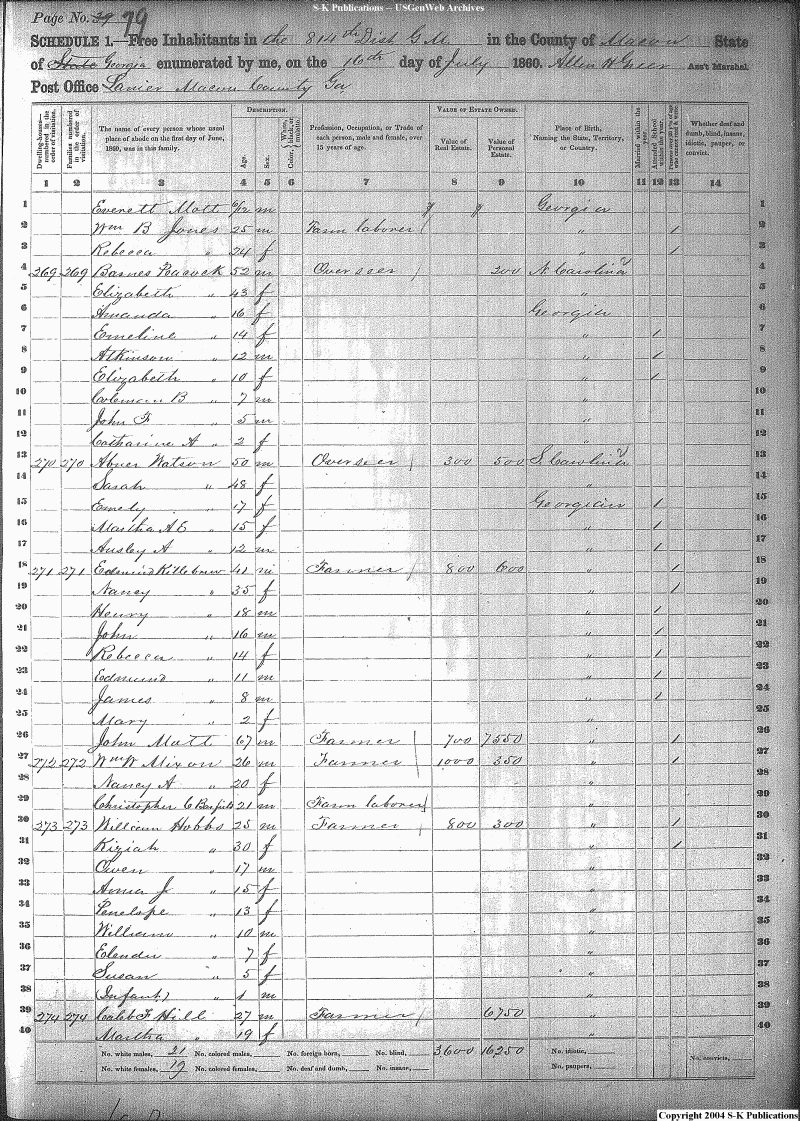 S-K Publications -- USGenWeb Archives
Page No. 39 79
SCHEDULE 1.—Free Inhabitants in the 814th Dist G. M. in the County of Macon State
of State Georgia enumerated by me, on the 16th day of July 1860. Allen H Greer Ass't Marshal.
Post Office Lanier Macon County Ga
Dwelling-houses—numbered in the order of visitation. Families numbered in the order of visitation. The name of every person whose usual place of abode on the first day of June, 1860, was in this family. DESCRIPTION. Age. Sex. Color, White, black, or mulatto. Profession, Occupation, or Trade of each person, male and female, over 15 years of age. VALUE OF ESTATE OWNED. Value of Real Estate. Value of Personal Estate. Place of Birth, Naming the State, Territory, or Country. Married within the year. Attended School within the year. Persons over 20 y'rs of age who cannot read & write. Whether deaf and dumb, blind, insane, idiotic, pauper, or convict.
1 2 3 4 5 6 7 8 9 10 11 12 13 14
1 Everett Mott 6/12 m Georgia 1
2 Wm B Jones 25 m Farm laborer " / 2
3 Rebecca " 24 f " / 3
4 269 269 Barnes Peacock 52 m Overseer 200 N. Carolina 4
5 Elizabeth " 43 f " 5
6 Amanda " 16 f Georgia 6
7 Emeline " 14 f " / 7
8 Atkinson " 12 m " / 8
9 Elizabeth " 10 f " / 9
10 Coleman B " 7 m " 10
11 John F " 5 m " 11
12 Catharine A " 2 f " 12
13 270 270 Abner Watson 50 m Overseer 300 500 S. Carolina 13
14 Sarah " 48 f " 14
15 Emely " 17 f Georgian / 15
16 Martha A E " 15 f " / 16
17 Ausley A " 12 m " / 17
18 271 271 Edmund Killebrew 41 m Farmer 800 600 " / 18
19 Nancy " 35 f " / 19
20 Henry " 18 m " / 20
21 John " 16 m " / 21
22 Rebecca " 14 f " / 22
23 Edmund " 11 m " / 23
24 James " 8 m " / 24
25 Mary " 2 f " 25
26 John Mott 67 m Farmer 700 7550 " / 26
27 272 272 Wm W Mixon 26 m Farmer 1000 350 " / 27
28 Nancy A " 20 f " 28
29 Christopher C Barfield 21 m Farm laborer " 29
30 273 273 William Hobbs 25 m Farmer 800 300 " / 30
31 Kiziah " 30 f " / 31
32 Owen " 17 m " 32
33 Anna J " 15 f " 33
34 Penelope " 13 f " 34
35 William " 10 m " 35
36 Elender " 7 f " 36
37 Susan " 5 f " 37
38 (Infant) " 1 m " 38
39 274 274 Caleb F Hill 27 m Farmer 6750 " 39
40 Martha " 19 f " 40
No. white males, 21 No. colored males, No. foreign born, No. blind, 3600 16250 No. idiotic, No. convicts,
No. white females, 19 No. colored females, No. deaf and dumb, No. insane, No. paupers,
Copyright 2004 S-K Publications